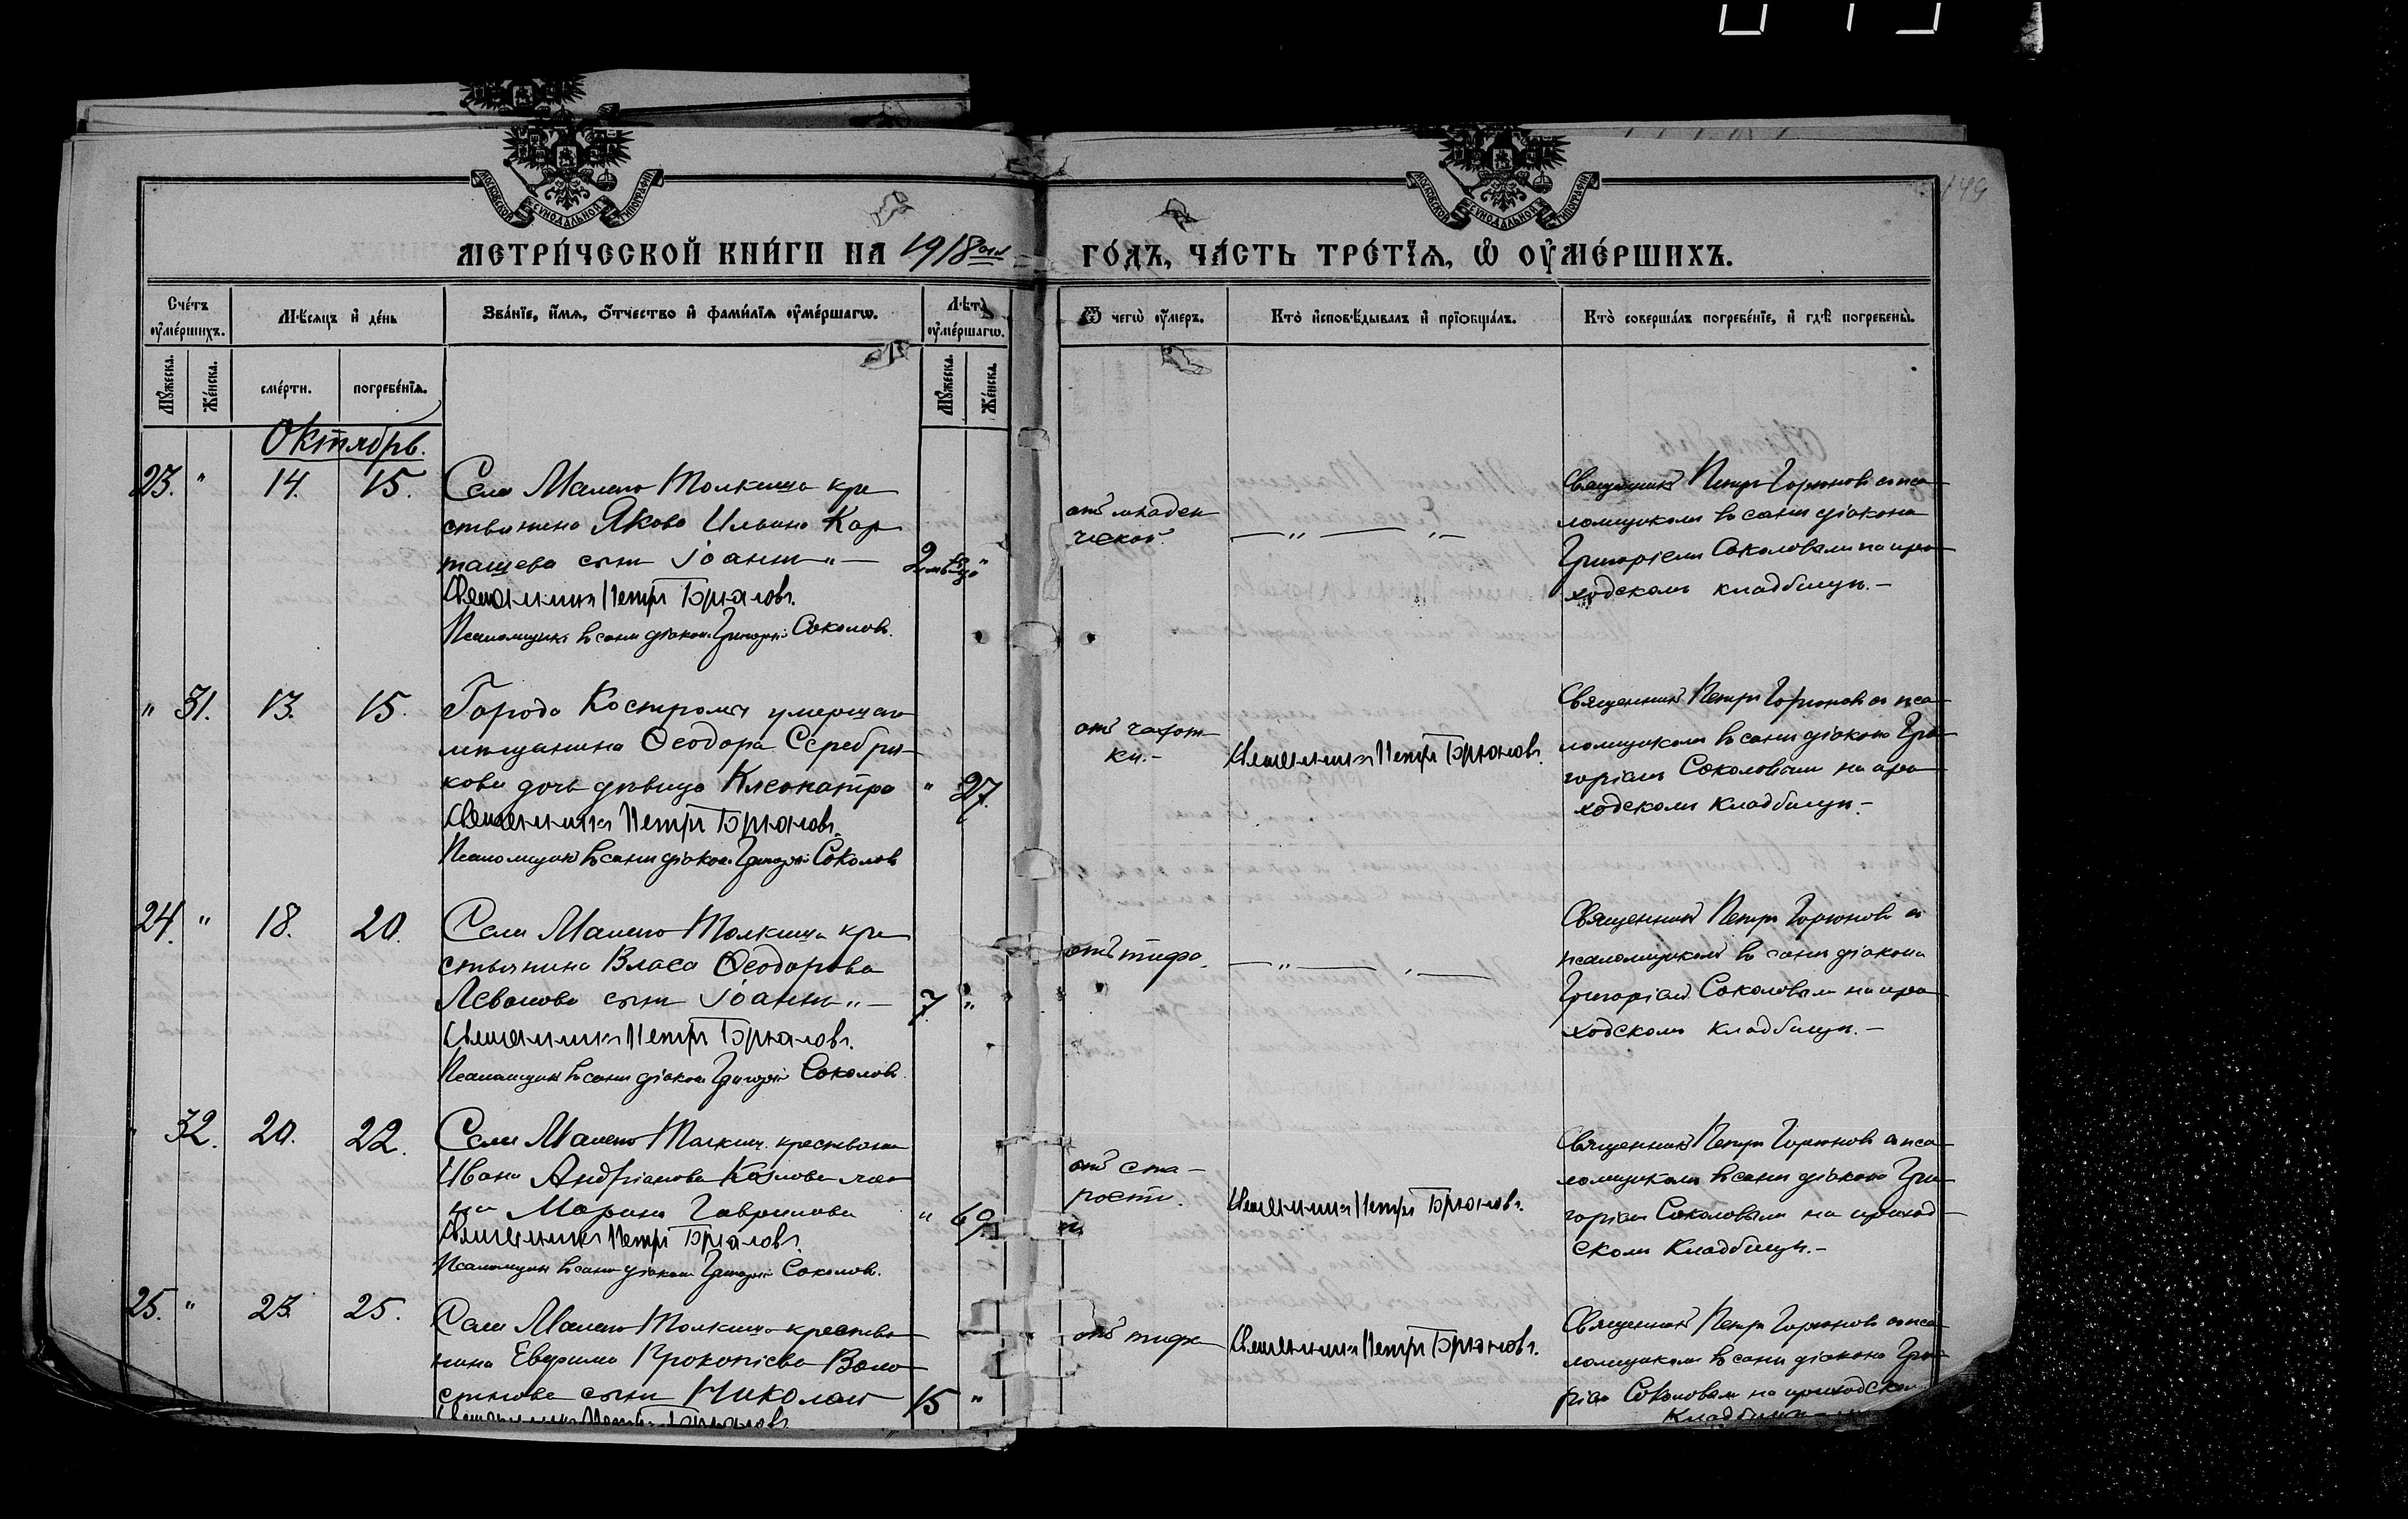 149
МОСКОВСКОЙ СѴНОДАЛЬНОЙ ТИПОГРАФІИ
МОСКОВСКОЙ СѴНОДАЛЬНОЙ ТИПОГРАФІИ
МЕТРИ́ЧЕСКОЙ КНИ́ГИ НА 1918 ГО́ДЪ, ЧА́СТЬ ТРЕ́ТІѦ, Ѡ ОУМЕ́РШИХЪ.
Сче́тъ оумершихъ.
Мѣсяцъ и де́нь
Зва́нїе, и́мѧ, о́тчество и фами́лїѧ оуме́ршагѡ.
Лѣта оуме́ршагѡ.
Ѿ чегѡ̀ оу́меръ.
Кто̀ исповѣ́дывалъ и прїобща́лъ.
Кто̀ соверша́лъ погребе́нїе, и гдѣ̀ погребены̀.
Мꙋжеска.
Же́нска.
сме́рти.
погребе́нїѧ.
Мꙋжеска.
Же́нска.
Октябрь.
23. " 14. 15.
Села Малаго Толкиша кре
стьянина Якова Ильина Кар
ташева сынъ Іоаннъ "—
2
Священникъ Петръ Горюновъ.
Псаломщикъ въ санѣ діакона Григорій Соколовъ.
отъ младен
ческой.
— " — " —
Священникъ Петръ Горюновъ съ пса
ломщикомъ въ санѣ діакона
Григоріемъ Соколовымъ на при
ходскомъ кладбищѣ.—
" 31. 13. 15.
Города Костромы умершаго
мѣщанина Ѳеодора Серебря
кова дочь дѣвица Клеопатра
" 27.
Священникъ Петръ Горюновъ.
Псаломщикъ въ санѣ діакона Григорій Соколовъ
отъ чахот
ки.—
Священникъ Петръ Горюновъ.
Священникъ Петръ Горюновъ съ пса
ломщикомъ въ санѣ діакона Гри
горіемъ Соколовымъ на при
ходскомъ кладбищѣ.—
24. " 18. 20.
Села Малаго Толкиша кре
стьянина Власа Ѳеодорова
Леванова сынъ Іоаннъ "—
7. "
Священникъ Петръ Горюновъ.
Псаломщикъ въ санѣ діакона Григорій Соколовъ
отъ тифа.
— " — " —
Священникъ Петръ Горюновъ съ
псаломщикомъ въ санѣ діакона
Григоріемъ Соколовымъ на при
ходскомъ кладбищѣ.—
" 32. 20. 22.
Села Малаго Толкиша крестьянина
Ивана Андріанова Козлова же
на Марина Гаврилова
" 69.
Священникъ Петръ Горюновъ.
Псаломщикъ въ санѣ діакона Григорій Соколовъ.
отъ ста—
рости.
Священникъ Петръ Горюновъ.
Священникъ Петръ Горюновъ съ пса
ломщикомъ въ санѣ діакона Гри
горіемъ Соколовымъ на приход
скомъ кладбищѣ.—
25. " 23. 25.
Села Малаго Толкиша крестья
нина Евфима Прокопіева
сынъ Николай
15 "
Священникъ Петръ Горюновъ.
отъ тифа
Священникъ Петръ Горюновъ.
Священникъ Петръ Горюновъ съ пса
ломщикомъ въ санѣ діакона Гри
ріемъ Соколовымъ на приходском
кладбищѣ—